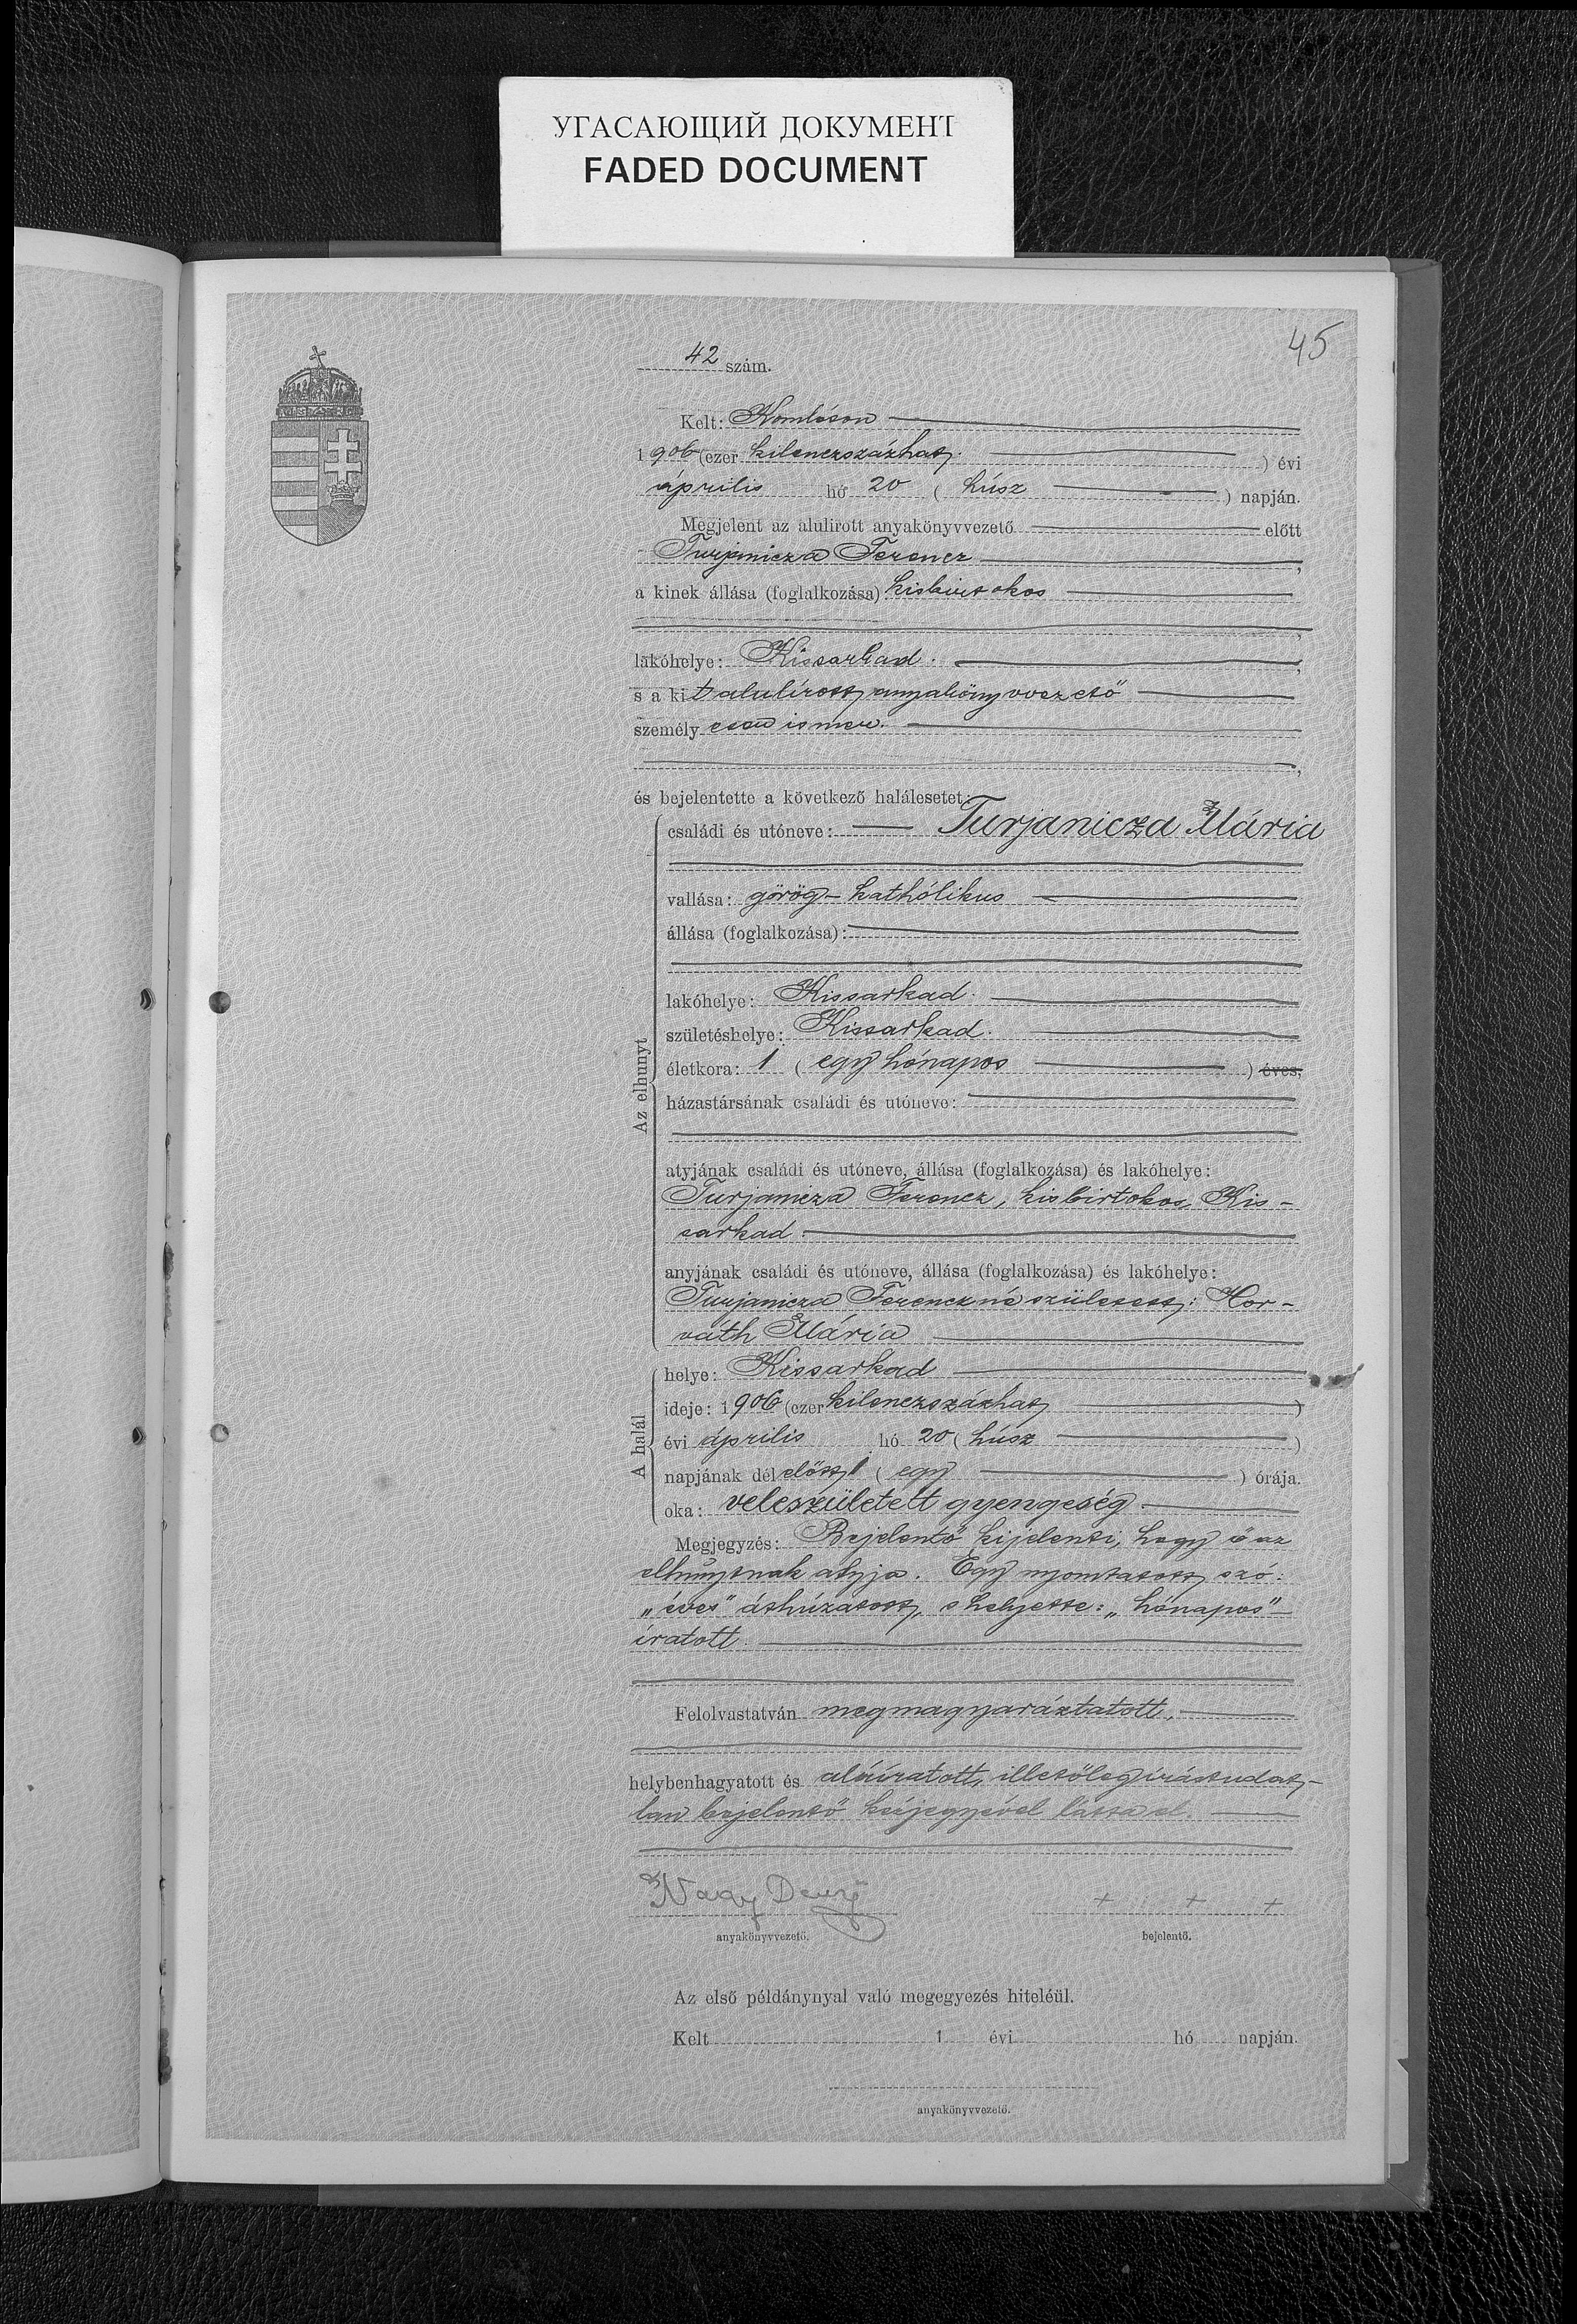 УГАСАЮЩИЙ ДОКУМЕНТ
FADED DOCUMENT
45
42 szám.
Kelt: Komlóson
1906 (ezer kilenczszázhat) évi
április hó 20 (húsz) napján.
Megjelent az alulirott anyakönyvvezető előtt
Turjanicza Ferencz,
a kinek állása (foglalkozása) kisbirtokos
lakóhelye: Kissarkad.
s a kit alulírott anyakönyvvezető
személyesen ismer.
és bejelentette a következő halálesetet:
Az elhunyt
családi és utóneve: Turjanicza Mária
vallása: görög-kathólikus
állása (foglalkozása):
lakóhelye: Kissarkad.
születéshelye: Kissarkad.
életkora: 1 (egy hónapos) éves,
házastársának családi és utóneve:
atyjának családi és utóneve, állása (foglalkozása) és lakóhelye:
Turjanicza Ferencz, kisbirtokos, Kis-
sarkad.
anyjának családi és utóneve, állása (foglalkozása) és lakóhelye:
Turjanicza Ferenczné született: Hor-
váth Mária
A halál
helye: Kissarkad
ideje: 1906 (ezer kilenczszázhat)
évi április hó 20 (húsz)
napjának délelőtt 1 (egy) órája.
oka: veleszületett gyengeség.
Megjegyzés: Bejelentő kijelenti, hogy ő az
elhunytnak atyja. Egy nyomtatott szó:
„éves" áthúzatott, s helyette: „hónapos"
íratott.
Felolvastatván megmagyaráztatott,
helybenhagyatott és aláíratott, illetőleg írástudat-
lan bejelentő kézjegyével látta el.
Nagy Dezső
+ + +
anyakönyvvezető.
bejelentő.
Az első példánynyal való megegyezés hiteléül.
Kelt 1 évi hó napján.
anyakönyvvezető.